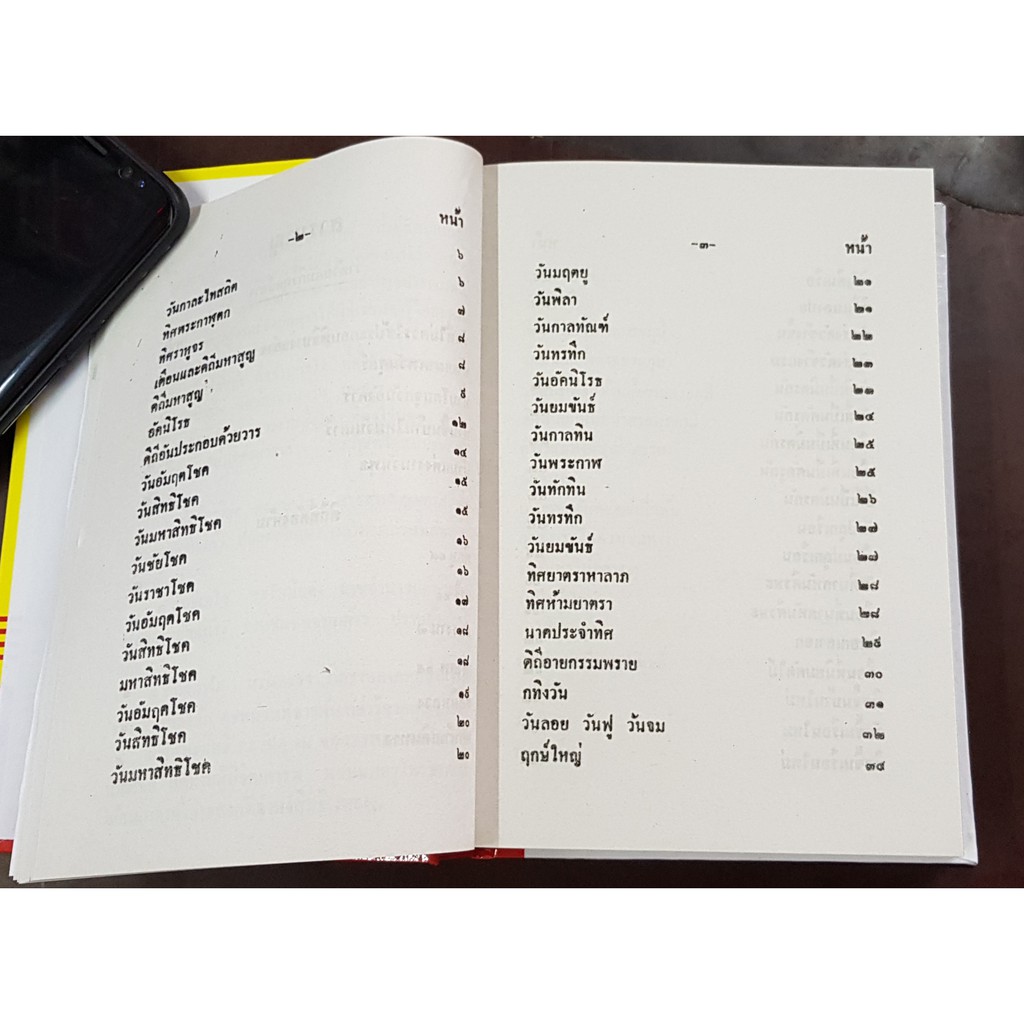 -๒- หน้า
วันกาละไทสถิต ๖
ทิศพระกาฬตก ๖
ทิศราหูจร ๗
เดือนและดิถีมหาสูญ ๘
ดิถีมหาสูญ ๘
อัคนิโรธ ๙
ดิถีอันประกอบด้วยวาร ๑๒
วันอัมฤตโชค ๑๔
วันสิทธิโชค ๑๕
วันมหาสิทธิโชค ๑๕
วันชัยโชค ๑๖
วันราชาโชค ๑๖
วันอัมฤตโชค ๑๗
วันสิทธิโชค ๑๘
มหาสิทธิโชค ๑๘
วันอัมฤตโชค ๑๙
วันสิทธิโชค ๒๐
วันมหาสิทธิโชค ๒๐
-๓- หน้า
วันมฤตยู ๒๑
วันพิลา ๒๑
วันกาลทัณฑ์ ๒๒
วันทรทึก ๒๓
วันอัคนิโรธ ๒๓
วันยมขันธ์ ๒๔
วันกาลทิน ๒๕
วันพระกาฬ ๒๕
วันทักทิน ๒๖
วันทรทึก ๒๗
วันยมขันธ์ ๒๗
ทิศยาตราหาลาภ ๒๘
ทิศห้ามยาตรา ๒๘
นาคประจำทิศ ๒๙
ดิถีอายกรรมพราย ๓๐
กทิงวัน ๓๑
วันลอย วันฟู วันจม ๓๒
ฤกษ์ใหญ่ ๓๔